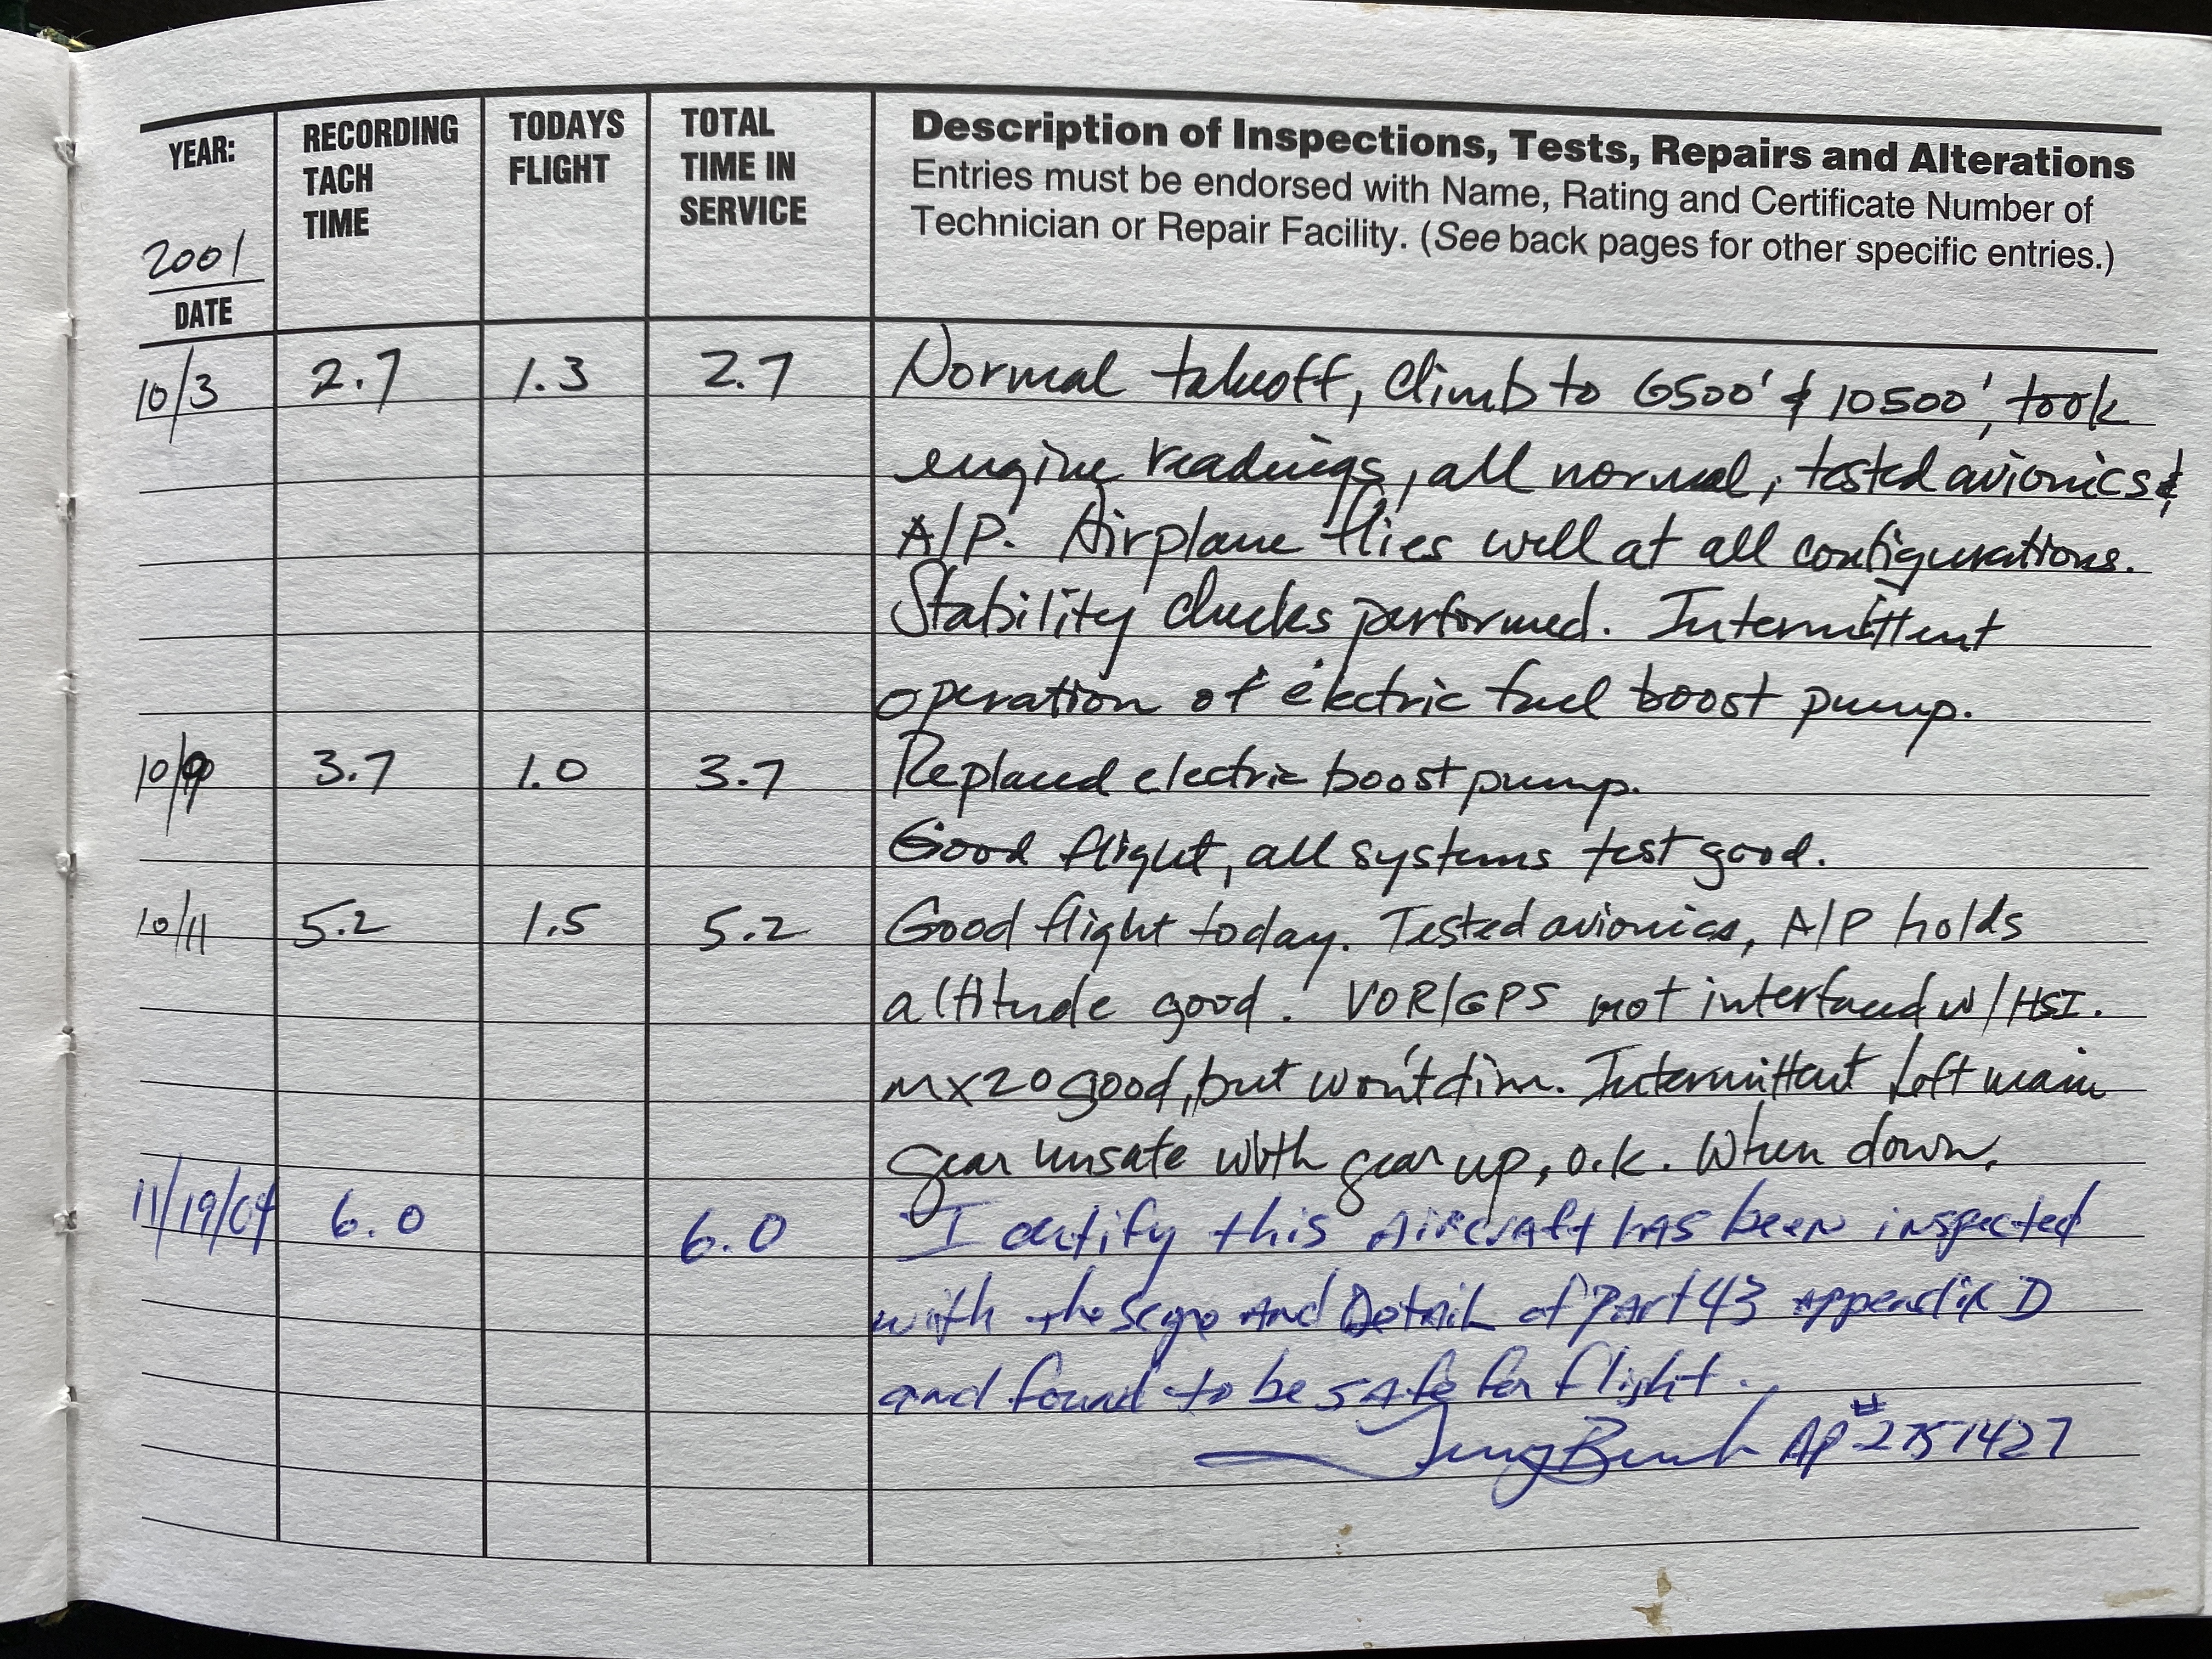 YEAR:
2001
DATE
RECORDING
TACH
TIME
TODAYS
FLIGHT
TOTAL
TIME IN
SERVICE
Description of Inspections, Tests, Repairs and Alterations
Entries must be endorsed with Name, Rating and Certificate Number of
Technician or Repair Facility. (See back pages for other specific entries.)
10/3 2.7 1.3 2.7 Normal takeoff, climb to 6500' & 10500', took
engine readings, all normal, tested avionics &
A/P. Airplane flies well at all configurations.
Stability checks performed. Intermittent
operation of electric fuel boost pump.
10/9 3.7 1.0 3.7 Replaced electric boost pump.
Good flight, all systems test good.
10/11 5.2 1.5 5.2 Good flight today. Tested avionics, A/P holds
altitude good. VOR/GPS not interfaced w/HSI.
MX20 good, but won't dim. Intermittent left main
gear unsafe with gear up, o.k. when down.
11/19/04 6.0 6.0 I certify this Aircraft has been inspected
with the scope And Detail of Part 43 appendix D
and found to be safe for flight.
AP # 2751427